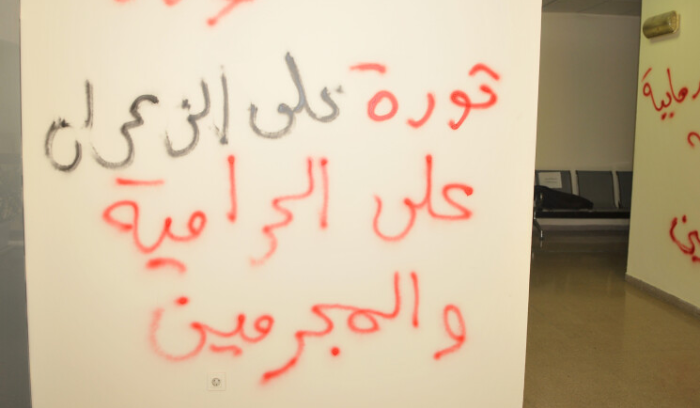 ثورة على الزعران
على الحرامية
والمجرمين